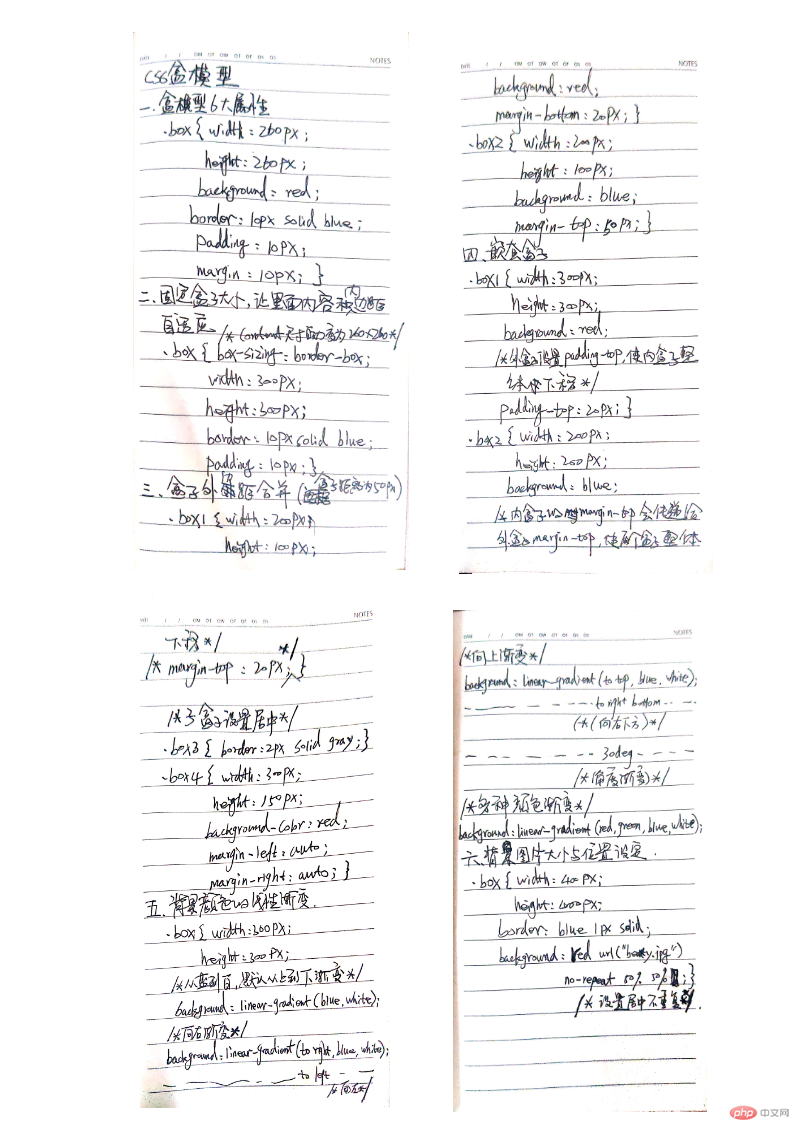 NOTES
CSS盒模型
一、盒模型6大属性
.box{ width:260px;
height:260px;
background:red;
border:10px solid blue;
padding:10px;
margin:10px; }
二、固定盒子大小,让里面内容和内边距
自适应
/*content尺寸应为260x260*/
.box{ box-sizing:border-box;
width:300px;
height:300px;
border:10px solid blue;
padding:10px;}
三、盒子外边距合并(盒子距离为50px)
.box1{width:200px;
height:100px;
NOTES
background:red;
margin-bottom:20px;}
.box2{ width:200px;
height:100px;
background:blue;
margin-top:50px;}
四、嵌套盒子
.box1{ width:300px;
height:300px;
background:red;
/*外盒子设置padding-top,使内盒子整
体下移*/
padding-top:20px;}
.box2{ width:200px;
height:200px;
background:blue;
/*内盒子的margin-top会传递给
外盒子margin-top,使两个盒子整体
NOTES
下移*/
/* margin-top:20px; */}
/*子盒子设置居中*/
.box3{ border:2px solid gray;}
.box4{ width:300px;
height:150px;
background-color:red;
margin-left:auto;
margin-right:auto;}
五、背景颜色的线性渐变.
.box{ width:300px;
height:300px;
/*从蓝到白,默认从上到下渐变*/
background:linear-gradient(blue,white);
/*向右渐变*/
background:linear-gradient(to right,blue,white);
to left
/*向左*/
NOTES
/*向上渐变*/
background:linear-gradient(to top,blue,white);
to right bottom
(*(向右下方)*/
30deg
/*(角度渐变)*/
/*多种颜色渐变*/
background:linear-gradient(red,green,blue,white);
六、背景图片大小与位置设定.
.box{ width:400px;
height:400px;
border:blue 1px solid;
background:red url(
no-repeat 50% 50%;}
/*设置居中不重复*/.
php 中文网